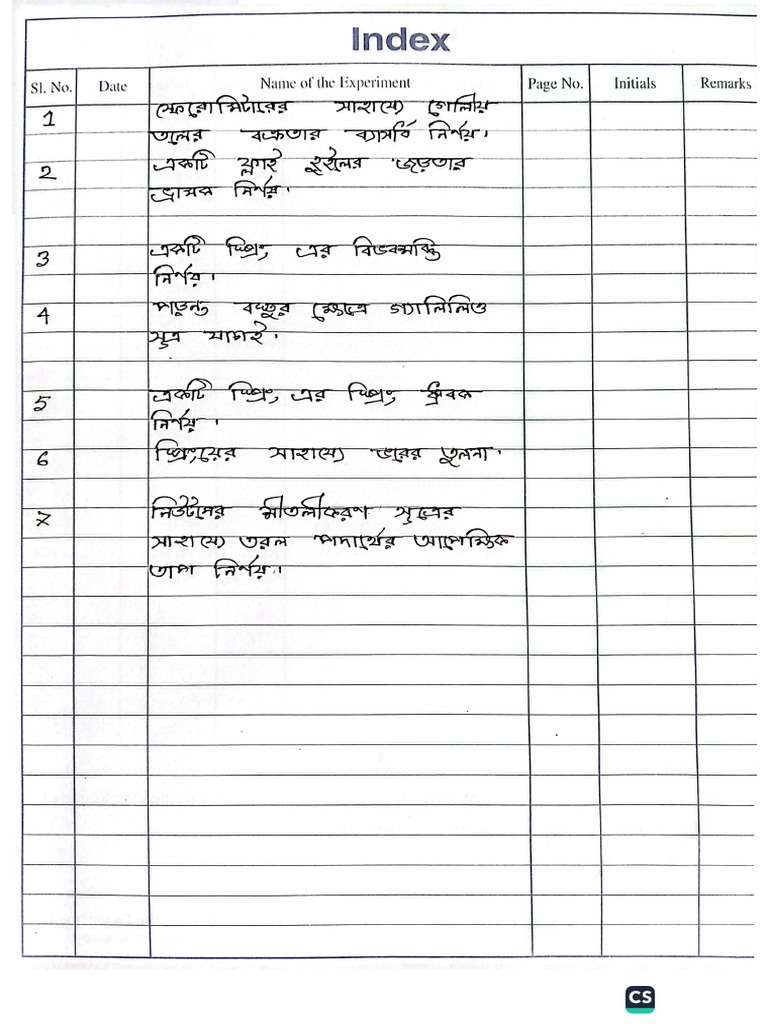 Index
Sl. No. Date Name of the Experiment Page No. Initials Remarks
1 স্ফেরোমিটারের সাহায্যে গোলীয়
তলের বক্রতার ব্যাসার্ধ নির্ণয়।
2 একটি ফ্লাই হুইলের জড়তার
ভ্রামক নির্ণয়।
3 একটি স্প্রিং এর বিভবশক্তি
নির্ণয়।
4 পড়ন্ত বস্তুর ক্ষেত্রে গ্যালিলিও
সূত্র যাচাই.
5 একটি স্প্রিং এর স্প্রিং ধ্রুবক
নির্ণয়।
6 স্প্রিংয়ের সাহায্যে ভরের তুলনা.
7 নিউটনের শীতলীকরণ সূত্রের
সাহায্যে তরল পদার্থের আপেক্ষিক
তাপ নির্ণয়।
CS